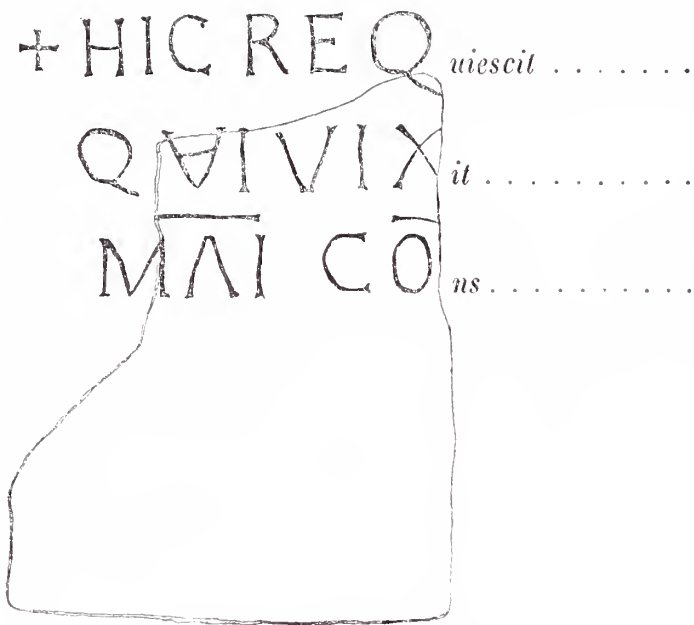 + HIC REQ uiescit . . . . . . .
QVIVIX it . . . . . . . . . .
MAI CO ns . . . . . . . . . .